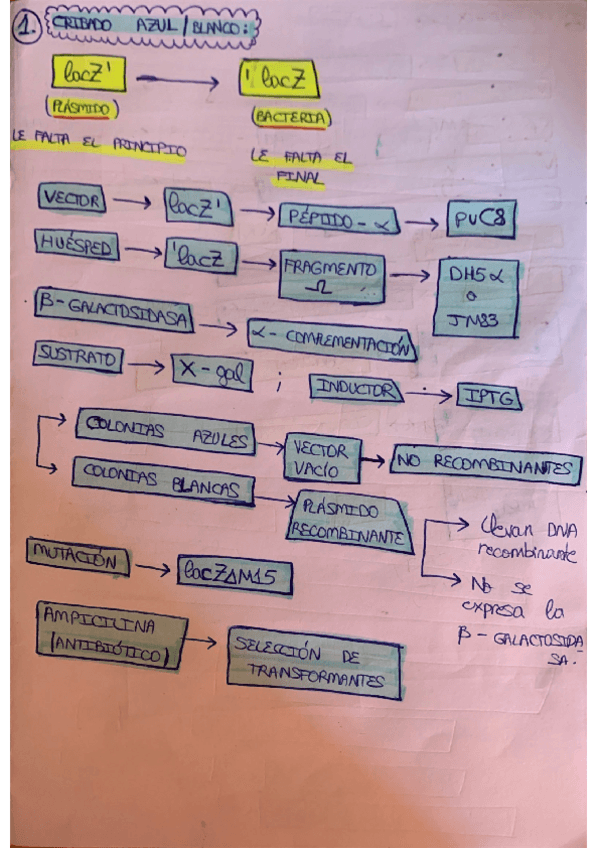 1. CRIBADO AZUL/BLANCO:
lacZ' → 'lacZ
(PLÁSMIDO) (BACTERIA)
LE FALTA EL PRINCIPIO
LE FALTA EL
FINAL
VECTOR → lacZ' → PÉPTIDO-α → PUC8
HUÉSPED → 'lacZ → FRAGMENTO
Ω → DH5α
o
JM83
β-GALACTOSIDASA → α-COMPLEMENTACIÓN
SUSTRATO → X-gal ; INDUCTOR → IPTG
COLONIAS AZULES → VECTOR
VACÍO → NO RECOMBINANTES
COLONIAS BLANCAS → PLÁSMIDO
RECOMBINANTE
→ Llevan DNA
recombinante
→ No se
expresa la
β-GALACTOSIDA
SA.
MUTACIÓN → lacZΔM15
AMPICILINA
(ANTIBIÓTICO) → SELECCIÓN DE
TRANSFORMANTES